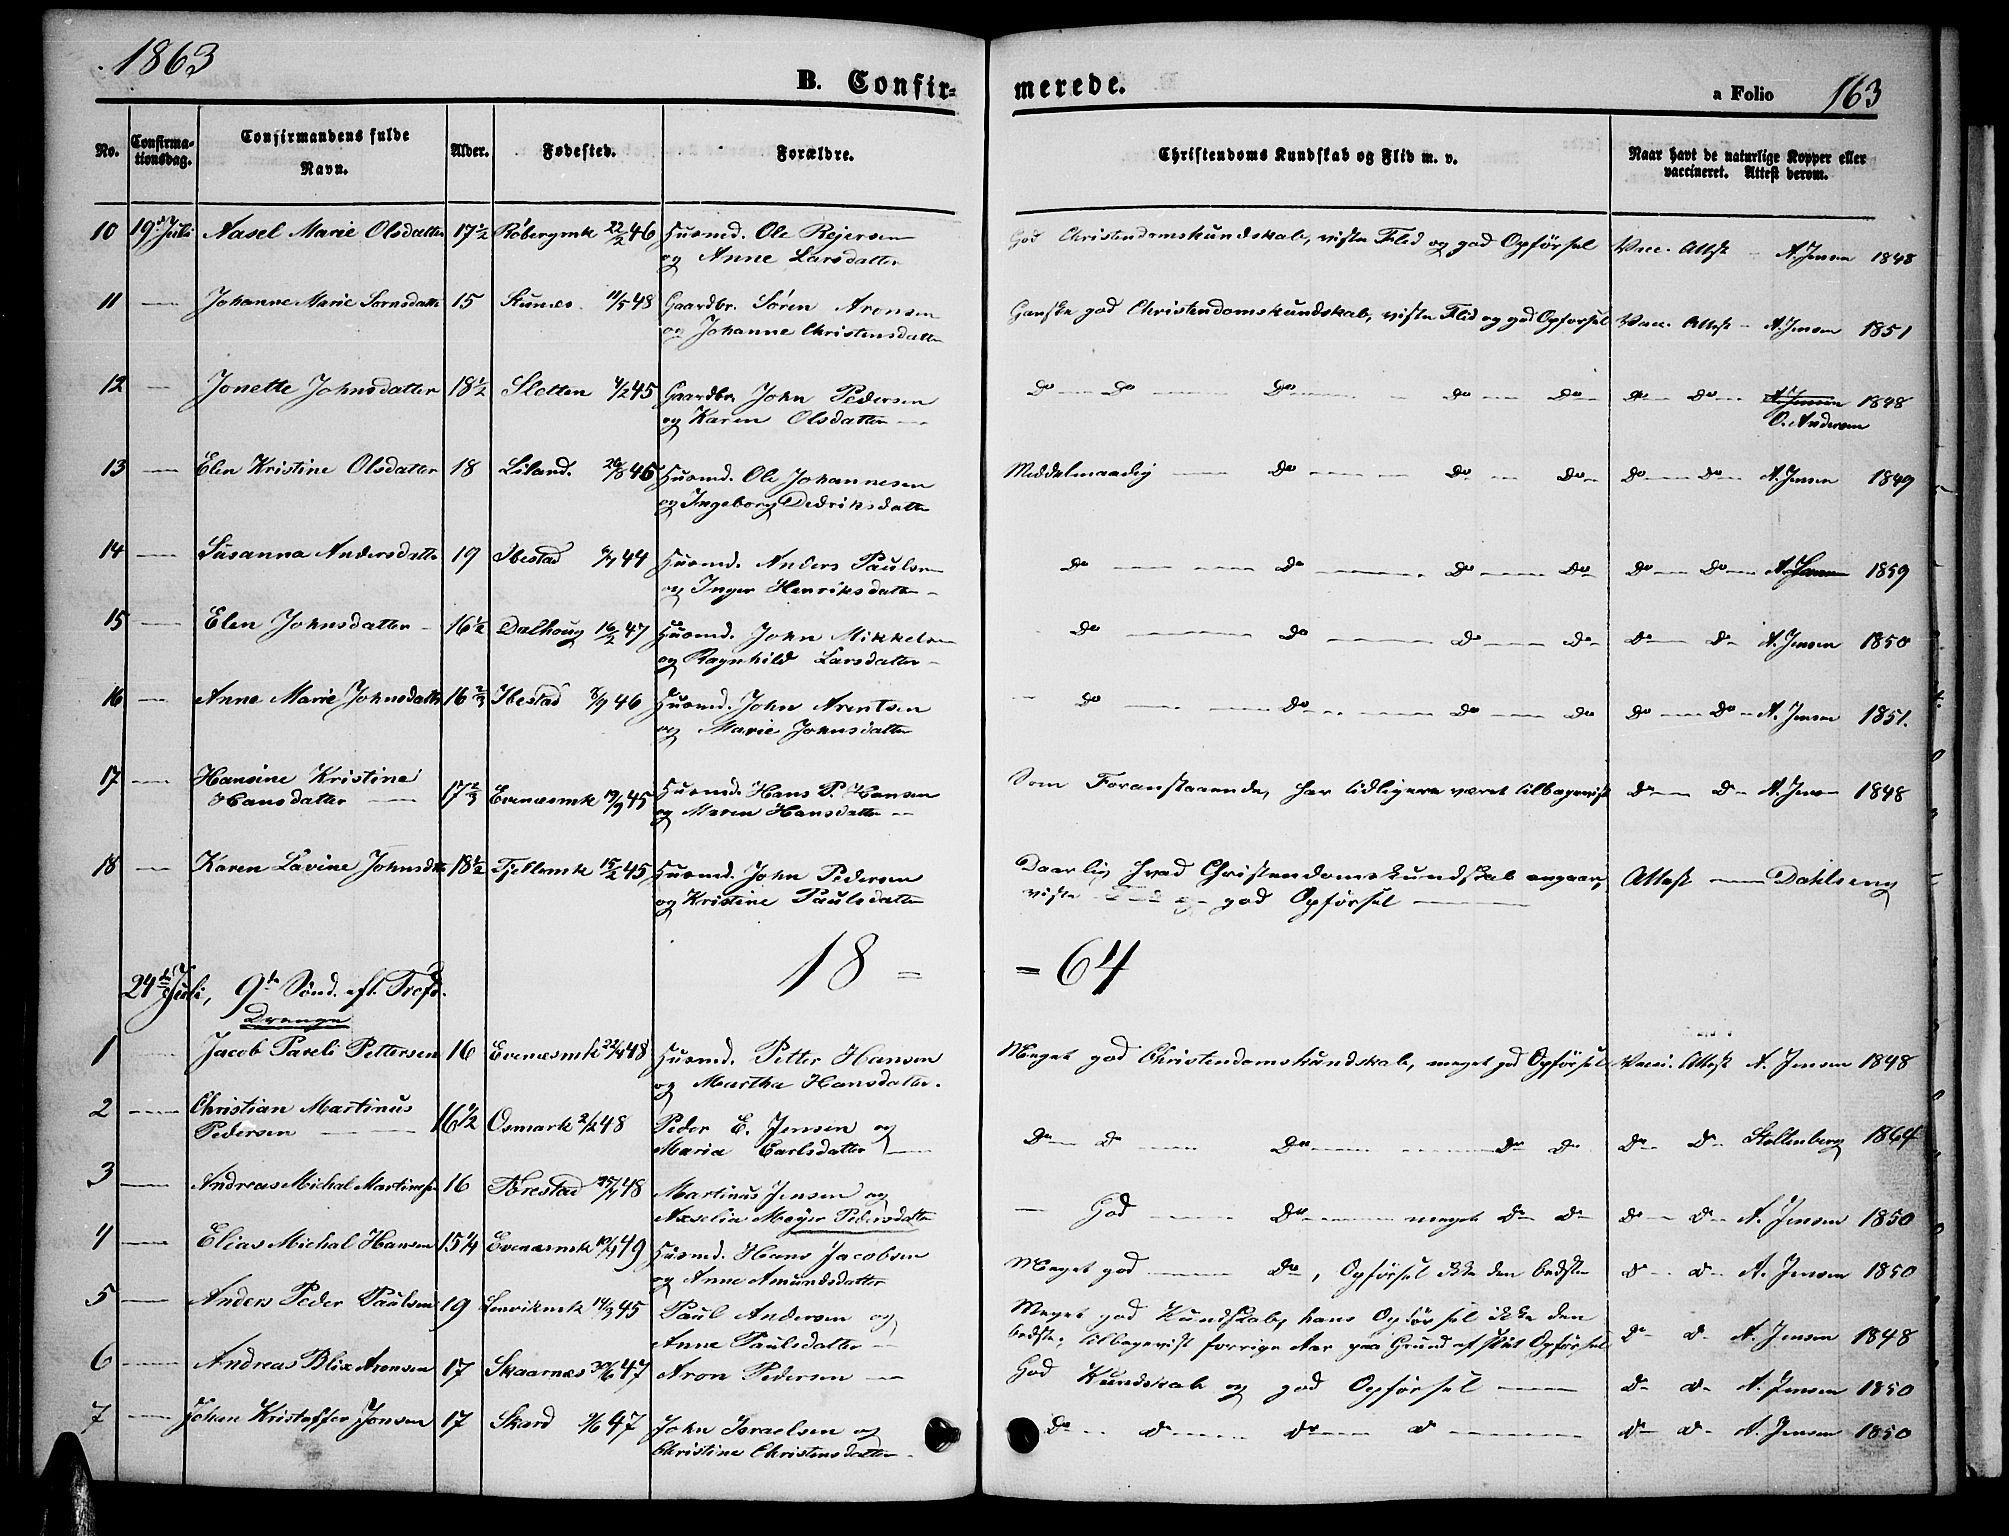 1863
B. Confir-
merede.
a Folio 163
No.
Confirma-
tionsdag.
Confirmandens fulde
Navn.
Alder.
Fødested.
Forældre.
Christendoms Kundskab og Flid m. v.
Naar havt de naturlige Kopper eller
vaccineret. Attest derom.
10 19de Juli Aasel Marie Olsdatter 17½ Röbergmk 22/2 46 Huusmd. Ole Rejersen God Christendomskundskab, viste Flid og god Opförsel Vacc. Attest A. Jensen 1848
og Anne Larsdatter
11 — Johanne Marie Sörnsdatter 15 11/5 48 Gaardbr. Sören Aronsen Ganske god Christendomskundskab, viste Flid og god Opförsel Vacc. Attest – A. Jensen 1851
og Johanne Christensdatter
12 — Jonette Johnsdatter 18½ Sletten 4/2 45 Gaardbr. John Pedersen Do — Do — Do — Do — Do Do — Do — A. Jensen 1848
og Karen Olsdatter — O. Andersen
13 — Elen Kristine Olsdatter 18 Liland Huusmd. Ole Johannesen Middelmaadig — Do — Do — Do Do — Do — A. Jensen 1849
og Ingeborg Dedriksdatter
14 — Susanna Andersdatter 19 Ibestad 44 Huusmd. Anders Paulsen Do — Do — Do — Do Do — Do — A. Jensen 1859
og Inger Henriksdatter –
15 — Elen Johnsdatter – 16½ Dalhoug 16/2 47 Huusmd. John Mikkelsen Do — Do — Do — Do Do — Do A. Jensen 1850
og Ragnhild Larsdatter –
16 — Anne Marie Johnsdatter 16⅔ Ibestad 8/9 46 Huusmd. John Arentsen — Do — Do — Do — Do Do — Do – A. Jensen 1851.
og Marie Johnsdatter
17 — Hansine Kristine
Hansdatter — 17⅔ Evenæsmk 45 Huusmd. Hans P. Hansen Som Foranstaaende, har tidligere været tilbagevist Do — Do A. Jensen 1848
og Maren Hansdatter —
18 — Karen Lavine Johnsdtr 18½ Fjeldmk 15/2 45 Huusmd. John Pedersen Daarlig hvad Christendomskundskab angaar, Attest — Dahlseng
og Kristine Paulsdatter viste Flid og god Opförsel —
18 =
= 64
24de Juli, 9de Sönd. eft. Trefo.
Drenge
1 — Jacob Pareli Pettersen 16 Evenæsmk 48 Huusmd. Petter Hansen Meget god Christendomskundskab, meget god Opförsel Vacci. Attest A. Jensen 1848
og Martha Hansdatter.
2 — Christian Martinus
Pedersen — 16½ Osmark 2/2 48 Peder E. Jensen og Do — Do — Do — Do Do Do — Do Stoltenberg 1864
Maria Carlsdatter —
3 — Andreas Michal Martinsen 16 48 Martinus Jensen og — God — Do — meget Do Do Do — Do A. Jensen 1850
Axselia Meyer Pedersdatter
4 — Elias Michal Hansen 15¼ Evenæsmk 49 Huusmd. Hans Jacobsen Meget god — Do, Opförsel ikke den bedste Do – Do – A. Jensen 1850
og Anne Amundsdatter
5 — Anders Peder Paulsen 19 Lenvikmk 14/3 45 Paul Andersen og Meget god Kundskab, hans Opförsel ikke den
Anne Paulsdatter — bedste; tilbagevist forrige Aar paa Grund af slet Opförsel Do – Do A. Jensen 1848
6 — Andreas Blix Aronsen 17 Skaarnes 47 Aron Pedersen — God Kundskab og god Opförsel — Do – Do – A. Jensen 1850
7 — Johan Kristoffer Jonsen 17 Skard 47 John Israelsen og Do — Do — Do — Do — Do — Do – A. Jensen 1850
Christine Christensdatter –